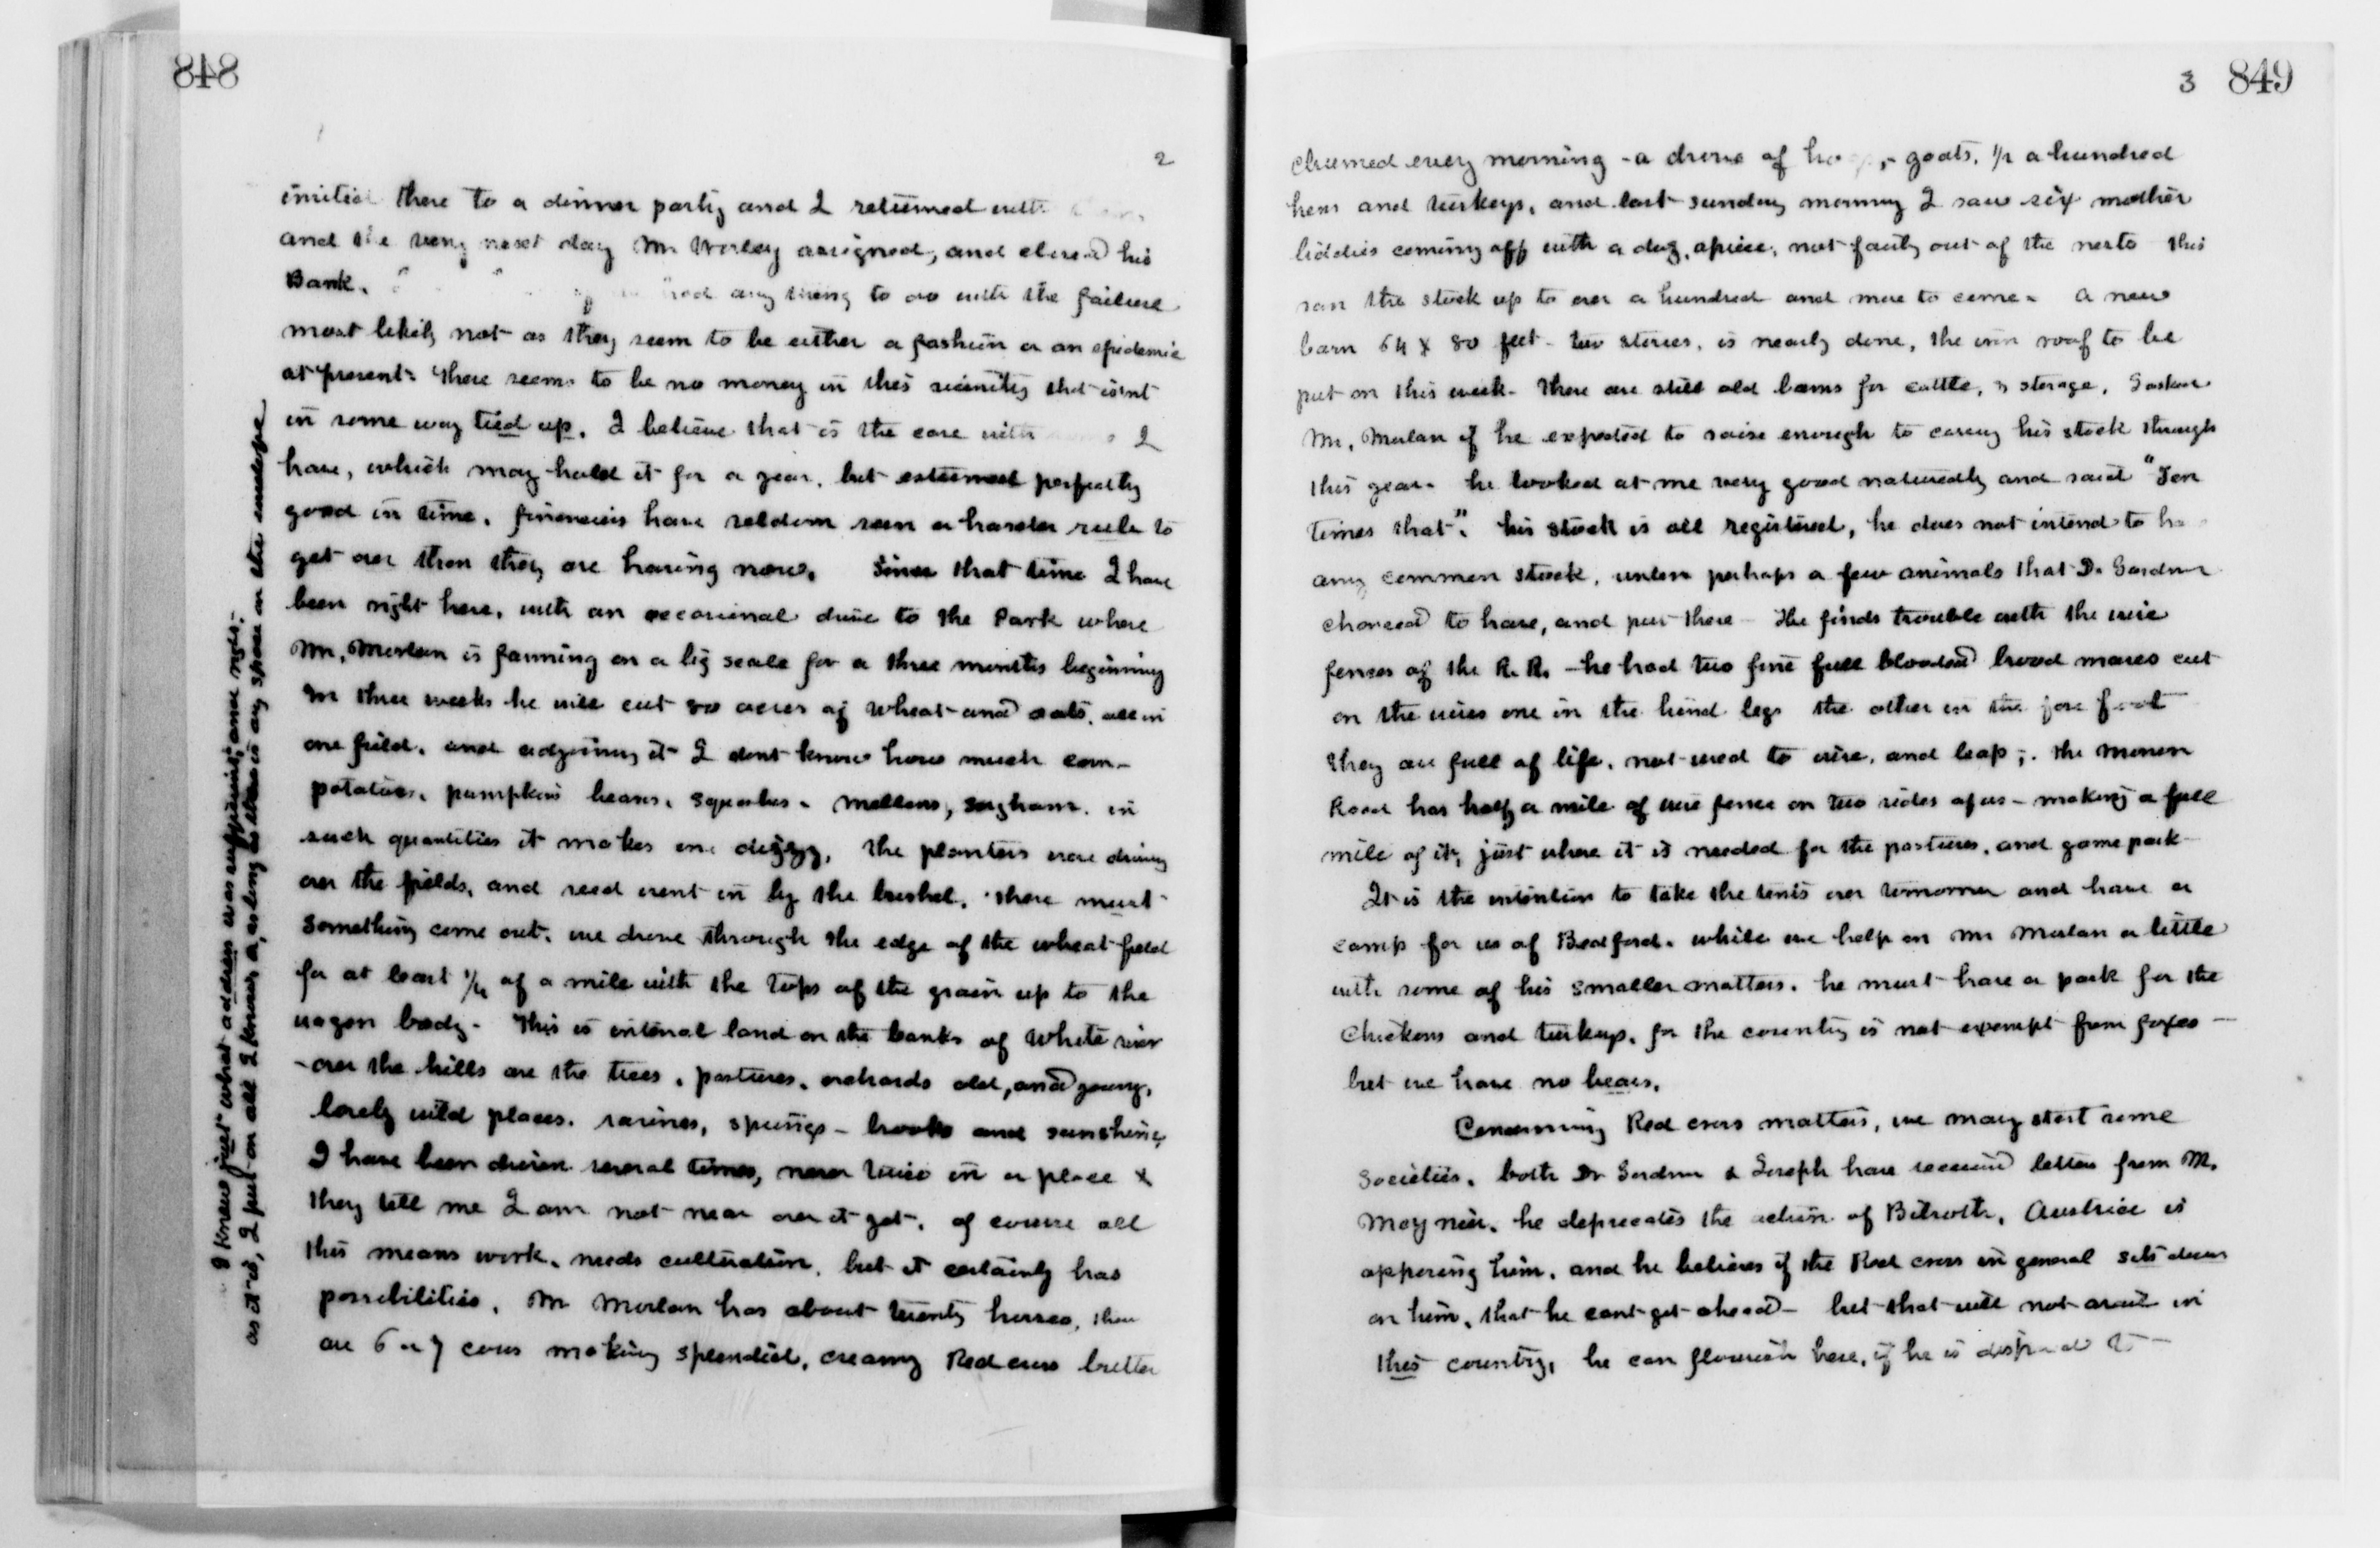 848
2
invited there to a dinner party and I returned with
and the very next day Mr Worley assigned, and closed his
Bank. had any thing to do with the failure
most likely not as they seem to be either a fashion or an epidemic
at present. There seems to be no money in this vicinity that isnt
in some way tied up. I believe that is the case with some I
have, which may hold it for a year, but esteemed perfectly
good in time. financeis have seldom seen a harder rule to
get over than they are having now. Since that time I have
been right here, with an occasional drive to the Park where
Mr. Morlan is farming on a big scale for a three months beginning
In three weeks he will cut 80 acres of wheat and oats, all in
one field, and adjoining it I dont know how much corn-
potatoes, pumpkins beans, squashes. mellons, sorghum. in
such quantities it makes one dizzy, the planters were driving
over the fields, and seed went in by the bushel, there must
something come out. we drove through the edge of the wheat field
for at least 1/4 of a mile with the tops of the grain up to the
wagon body- This is interval land on the banks of White river
-over the hills are the trees, pastures, orchards old, and young,
lovely wild places. ravines, springs - brooks and sunshine,
I have been driven several times, never twice in a place &
they tell me I am not near over it yet. of course all
this means work, needs cultivation, but it certainly has
possibilities. Mr Morlan has about twenty horses, there
are 6 or 7 cows making splendid, creamy Red cross butter
I knew just what address was sufficient, and right;
as it is, I put on all I know as long as there is any space on the envelope
3 849
churned every morning - a drove of hogs, - goats, 1/2 a hundred
hens and turkeys, and last sunday morning I saw six mother
biddies coming off with a doz, apiece, not fairly out of the nests this
ran the stock up to over a hundred and more to come. A new
barn 64 x 80 feet - two stories, is nearly done, the iron roof to be
put on this week. There are still old barns for cattle, & storage, I asked
Mr. Morlan if he expected to raise enough to carry his stock through
this year. he looked at me very good naturedly and said "Ten
times that". his stock is all registered, he does not intend to
any common stock, unless perhaps a few animals that Dr Gardner
chanced to have, and put there - He finds trouble with the wire
fences of the R. R. - he had two fine full blooded brood mares cut
on the wires one in the hind legs the other in the fore foot
They are full of life, not used to wire, and leap;. the Monon
Road has half a mile of wire fence on two sides of us - making a full
mile of it, just where it is needed for the pastures, and game park
It is the intention to take the tents over tomorrow and have a
camp for us of Bedford. while we help on Mr Morlan a little
with some of his smaller matters. he must have a park for the
chickens and turkeys, for the country is not exempt from foxes -
but we have no bears.
Concerning Red cross matters, we may start some
Societies, both Dr Gardner & Joseph have received letters from M.
Moynier. he deprecates the action of Bilroth, Austria is
opposing him, and he believes if the Red cross in general sets down
on him, that he cant get ahead - but that will not avail in
this country, he can flourish here, if he is disposed to -